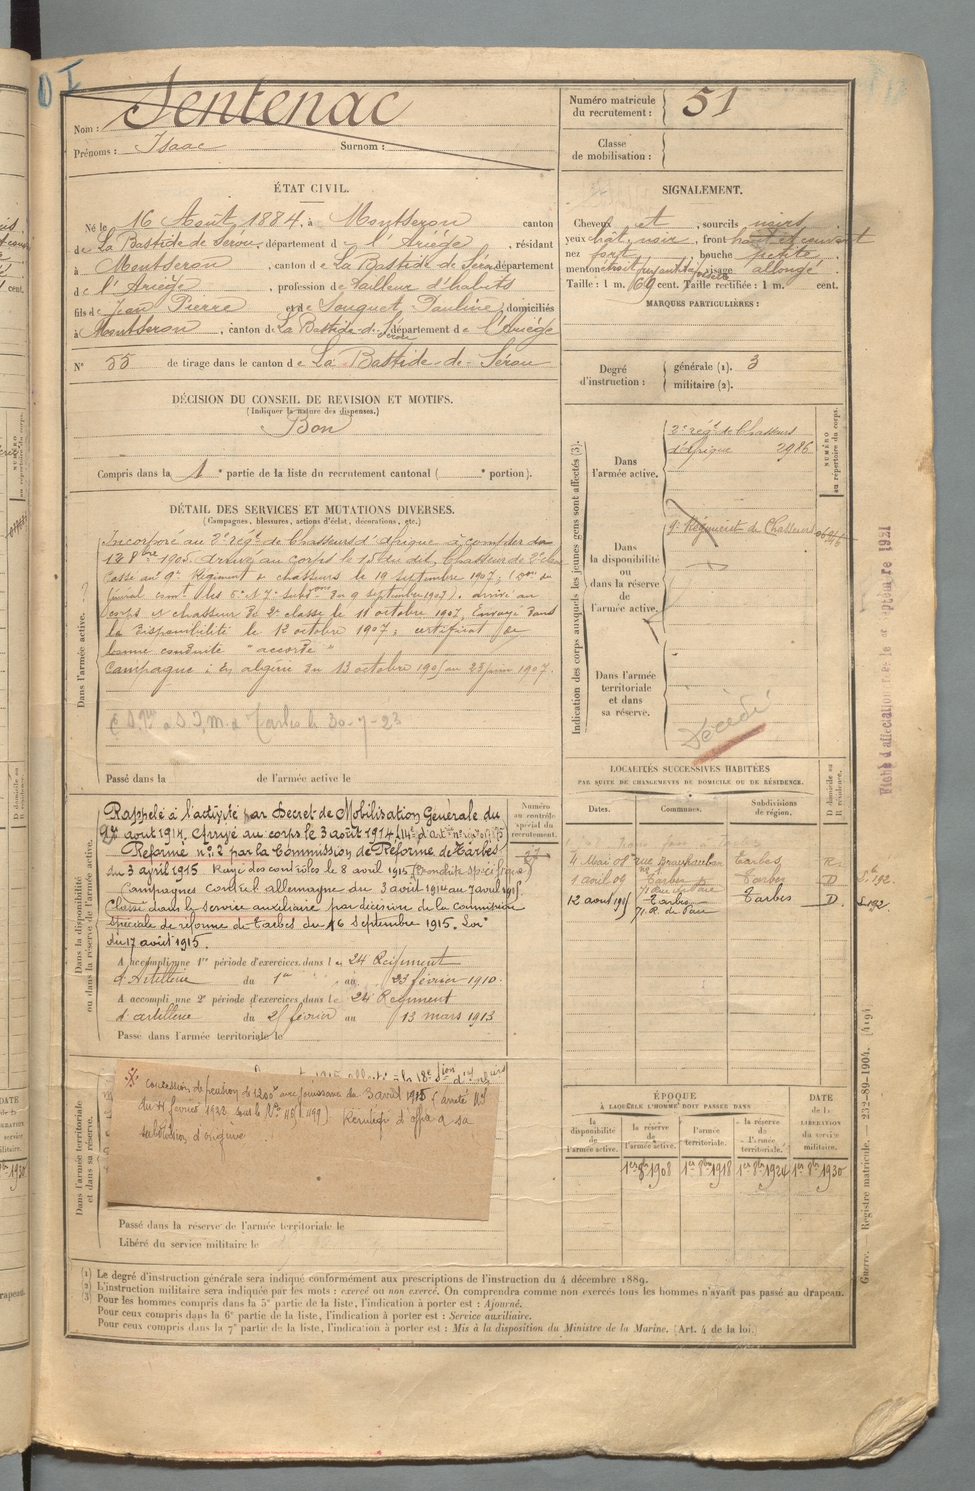 Nom : Sentenac
Prénoms : Isaac Surnom :
Numéro matricule du recrutement : 51
Classe de mobilisation :
ÉTAT CIVIL.
Né le 16 Août 1884, à Montseron canton
de La Bastide de Sérou, département de l'Ariège, résidant
à Montseron, canton de La Bastide de Sérou département
de l'Ariège, profession de tailleur d'habits
fils de Jean Pierre et de Souquet, Pauline, domiciliés
à Montseron, canton de La Bastide-de-Sérou département de l'Ariège
N° 55 de tirage dans le canton de La Bastide-de-Sérou
SIGNALEMENT.
Cheveux et , sourcils noirs
yeux chât. noir, front haut et couvrant
nez fort bouche petite
menton visage allongé
Taille : 1 m. 69 cent. Taille rectifiée : 1 m. cent.
MARQUES PARTICULIÈRES :
Degré d'instruction : générale (1). 3
militaire (2).
DÉCISION DU CONSEIL DE REVISION ET MOTIFS.
(Indiquer la nature des dispenses.)
Bon
Compris dans la 1e partie de la liste du recrutement cantonal ( e portion).
DÉTAIL DES SERVICES ET MUTATIONS DIVERSES.
(Campagnes, blessures, actions d'éclat, décorations, etc.)
Dans l'armée active.
Incorporé au 2e régt de Chasseurs d'Afrique à compter du
1905. Arrivé au corps le 15 du dit, Chasseur de 2e classe
Passé au 9e Régiment de chasseurs le 19 septembre 1907;
du 9 septembre 1907). arrivé au
corps et chasseur de 2e classe le 11 octobre 1907. Envoyé dans
la disponibilité le 12 octobre 1907; certificat de
bonne conduite "accordé"
Campagne : en algérie du 13 octobre 1905 au 28 juin 1907.
Tarbes le 30-7-23
Passé dans la de l'armée active le
Indication des corps auxquels les jeunes gens sont affectés (3).
NUMÉRO au répertoire du corps.
Dans l'armée active.
2e régt de Chasseurs
d'Afrique 2986
Dans la disponibilité ou dans la réserve de l'armée active.
9e Régiment de Chasseurs
Dans l'armée territoriale et dans sa réserve.
Décédé
Dans la disponibilité ou dans la réserve de l'armée active.
Numéro au contrôle spécial du recrutement.
Rappelé à l'activité par Décret de Mobilisation Générale du
août 1914. Arrivé au corps le 3 août 1914
Réformé n° 2 par la Commission de Réforme de Tarbes
du 3 avril 1915 Rayé des contrôles le 8 avril 1915 (Bronchite spécifique)
Campagnes contre l'allemagne du 3 août 1914 au 7 avril 1915
Classé dans le service auxiliaire par décision de la Commission
spéciale de réforme de Tarbes du 16 Septembre 1915. Loi
du 17 août 1915.
A accompli une 1re période d'exercices dans le 24 Régiment
d'Artillerie du 1er au 23 février 1910.
A accompli une 2e période d'exercices dans le 24 Régiment
d'artillerie du 25 février au 13 mars 1913
Passé dans l'armée territoriale le
LOCALITÉS SUCCESSIVES HABITÉES
PAR SUITE DE CHANGEMENTS DE DOMICILE OU DE RÉSIDENCE.
Dates. Communes. Subdivisions de région. D domicile ou R résidence.
11 Mai 08 rue Brauhauban Tarbes R.
1 avril 09 Tarbes Tarbes D
12 août 1915 Tarbes Tarbes D.
71. R. de Pau
Dans l'armée territoriale et dans sa réserve.
Concession de pension de 1200f avec jouissance du 3 avril 1915 (arrêté
du 11 février 1928 sous le N°
subdivision d'origine
Passé dans la réserve de l'armée territoriale le
Libéré du service militaire le
ÉPOQUE
À LAQUELLE L'HOMME DOIT PASSER DANS
la disponibilité de l'armée active. la réserve de l'armée active. l'armée territoriale. la réserve de l'armée territoriale. DATE de la LIBÉRATION du service militaire.
1er 8bre 1908 1er 8bre 1918 1er 8bre 1924 1er 8bre 1930
(1) Le degré d'instruction générale sera indiqué conformément aux prescriptions de l'instruction du 4 décembre 1889.
(2) L'instruction militaire sera indiquée par les mots : exercé ou non exercé. On comprendra comme non exercés tous les hommes n'ayant pas passé au drapeau.
(3) Pour les hommes compris dans la 5e partie de la liste, l'indication à porter est : Ajourné.
Pour ceux compris dans la 6e partie de la liste, l'indication à porter est : Service auxiliaire.
Pour ceux compris dans la 7e partie de la liste, l'indication à porter est : Mis à la disposition du Ministre de la Marine. (Art. 4 de la loi.)
Guerre. — Registre matricule. — 232-89-1904. [419]